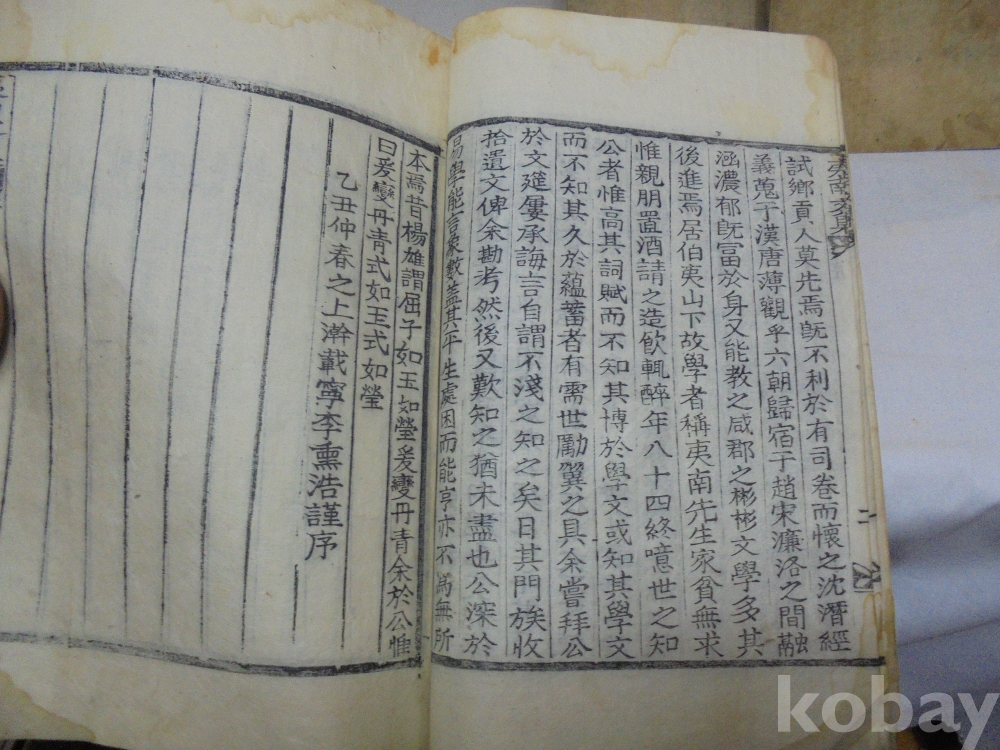 夷南文集
二
試鄉貢人莫先焉旣不利於有司卷而懷之沈潛經
義蒐于漢唐薄觀乎六朝歸宿于趙宋濂洛之間融
涵濃郁旣富於身又能教之咸郡之彬彬文學多其
後進焉居伯夷山下故學者稱夷南先生家貧無求
惟親朋置酒請之造飮輒醉年八十四終噫世之知
公者惟高其詞賦而不知其博於學文或知其學文
而不知其久於蘊蓄者有需世勵翼之具余嘗拜公
於文筵屢承誨言自謂不淺之知之矣日其門族收
拾遺文俾余勘考然後又歎知之猶未盡也公深於
易學能言象數盖其平生處困而能亨亦不爲無所
本焉昔楊雄謂屈子如玉如瑩爰變丹青余於公惟
曰爰變丹青式如玉式如瑩
乙丑仲春之上澣載寧李熏浩謹序
kobay